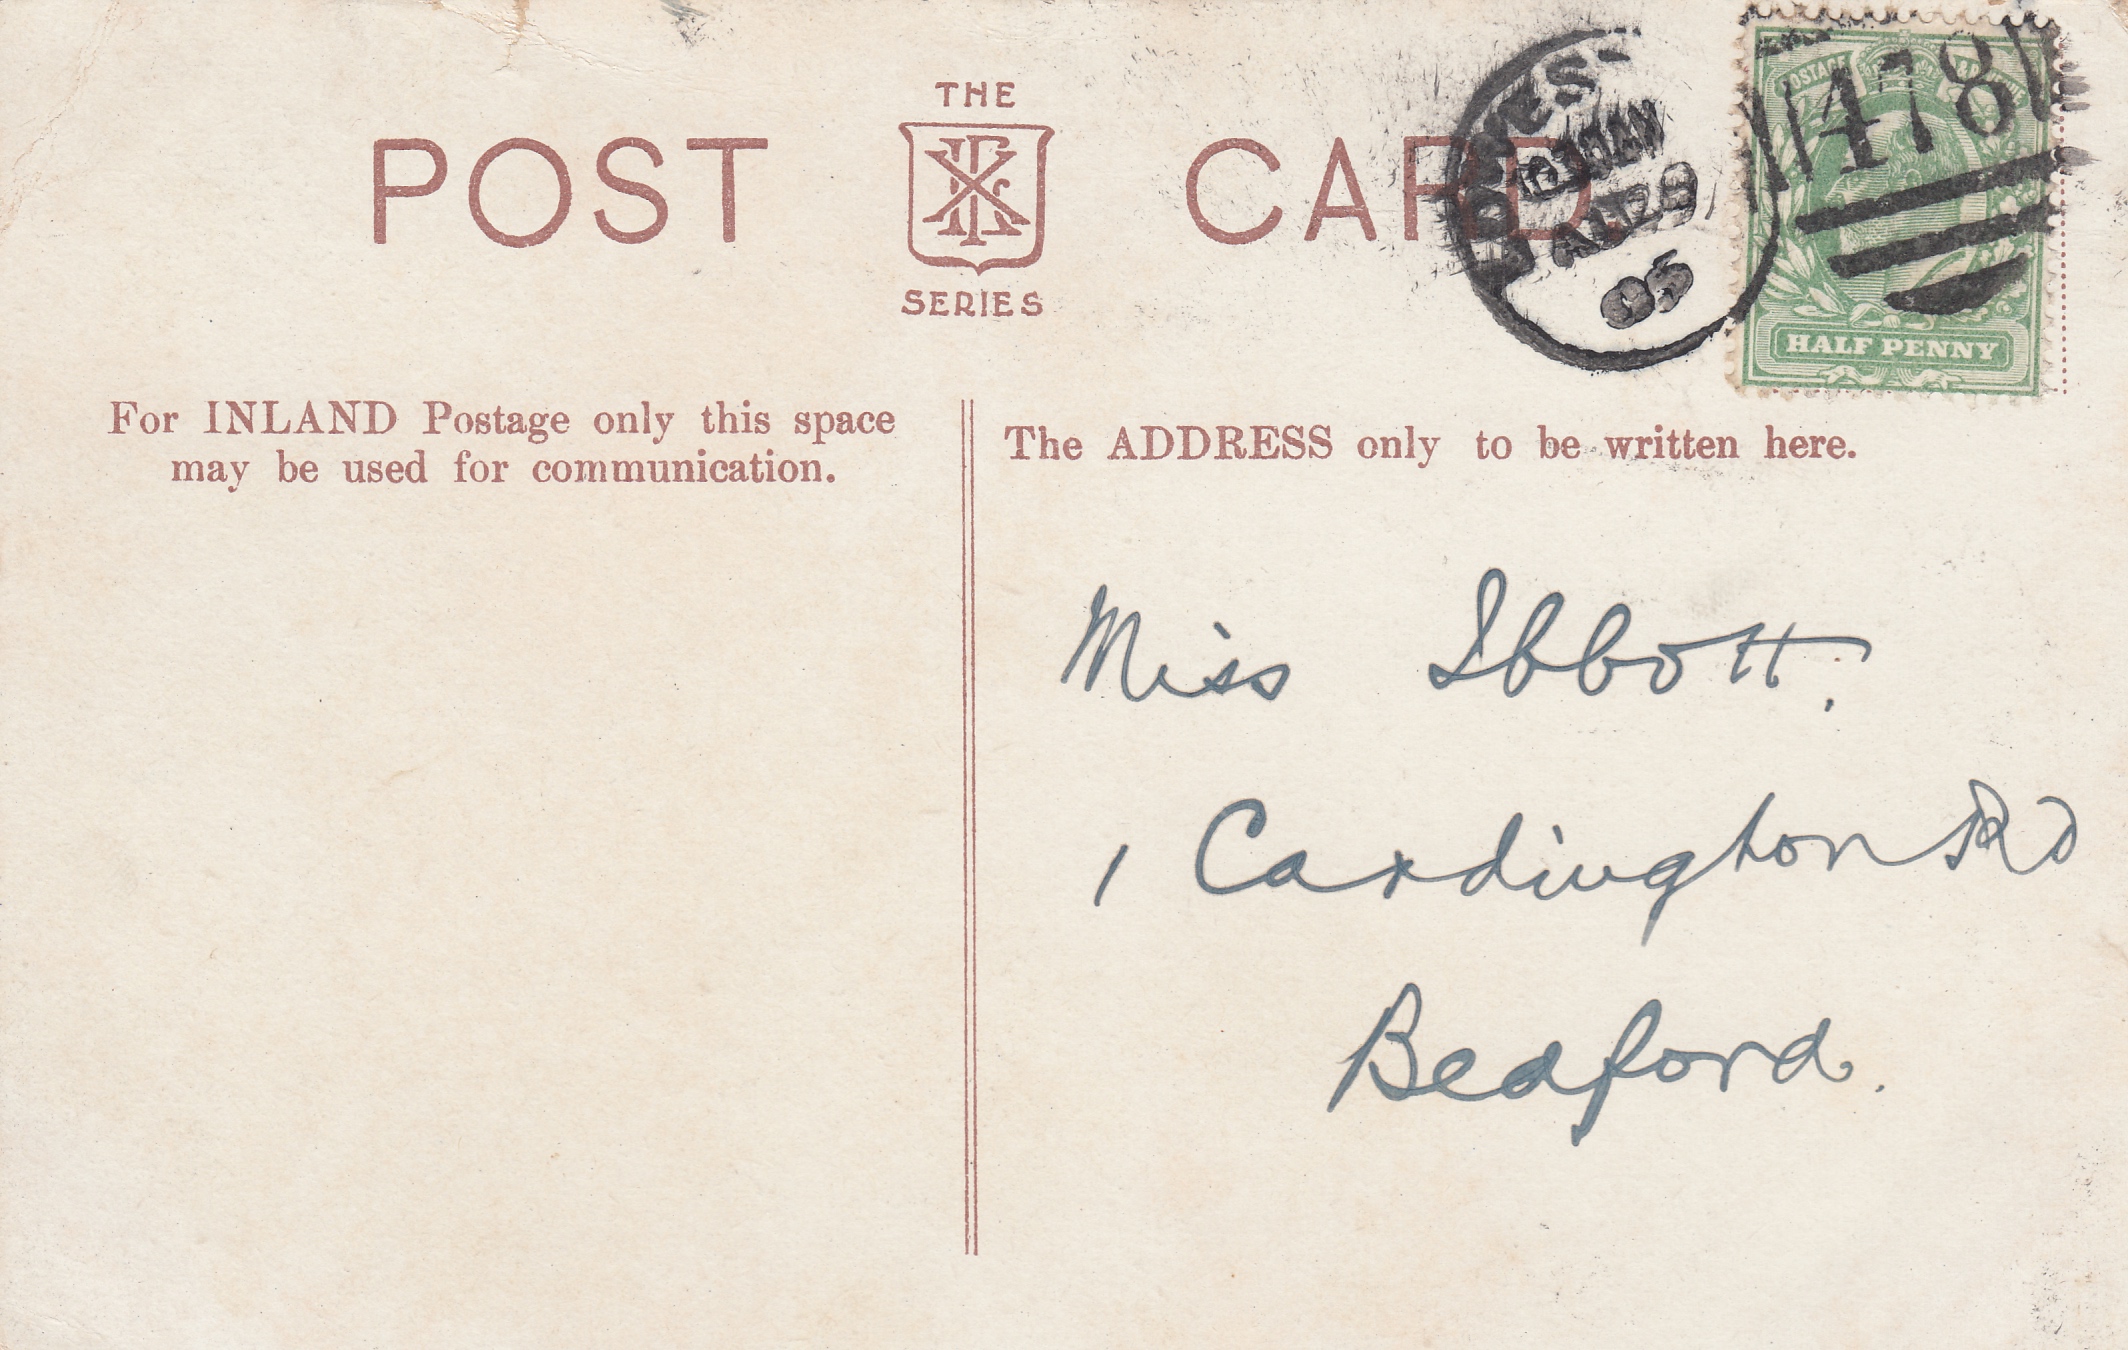 THE
POST CARD
SERIES
10 30 AM
AU 28
05
478
POSTAGE
HALF PENNY
For INLAND Postage only this space
may be used for communication.
The ADDRESS only to be written here.
Miss Ibbott.
1 Cardington Rd
Bedford.